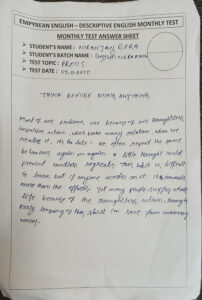 EMPYREAN ENGLISH - DESCRIPTIVE ENGLISH MONTHLY TEST
MONTHLY TEST ANSWER SHEET
➤ STUDENT'S NAME : NIRANJAN BERA
➤ STUDENT'S BATCH NAME :
➤ TEST TOPIC : PRECIS
➤ TEST DATE :
THINK BEFORE DOING ANYTHING
Most of our problems are because of our thoughtless,
impulsive action, which ruins many relation when we
realise it, its too late. We often repeat the same
behaviour again an again. A little thought could
prevent countless regrets. This habit is difficult
to learn but if anyone works on it, it
more than the efforts. Yet many people suffer whole
life because of the thoughtless action, though
early learning of this skill can save from unnecessary
misery.